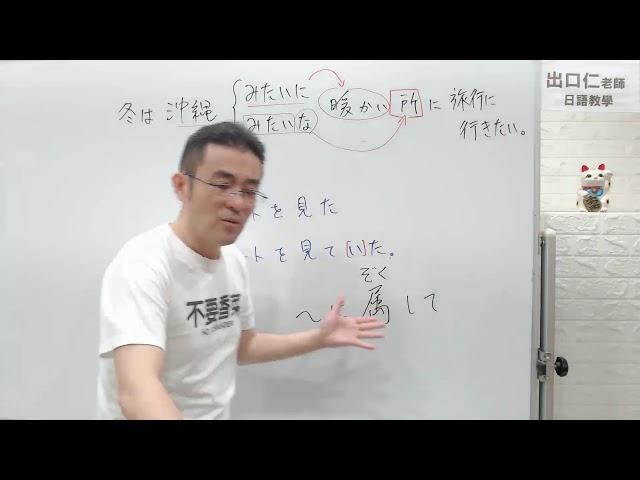 冬は 沖縄 { みたいに みたいな 暖かい 所 に 旅行に 行きたい。
出口仁老師
日語教學
トを見た
トを見て(い)た。
ぞく
〜に属して
不要香菜